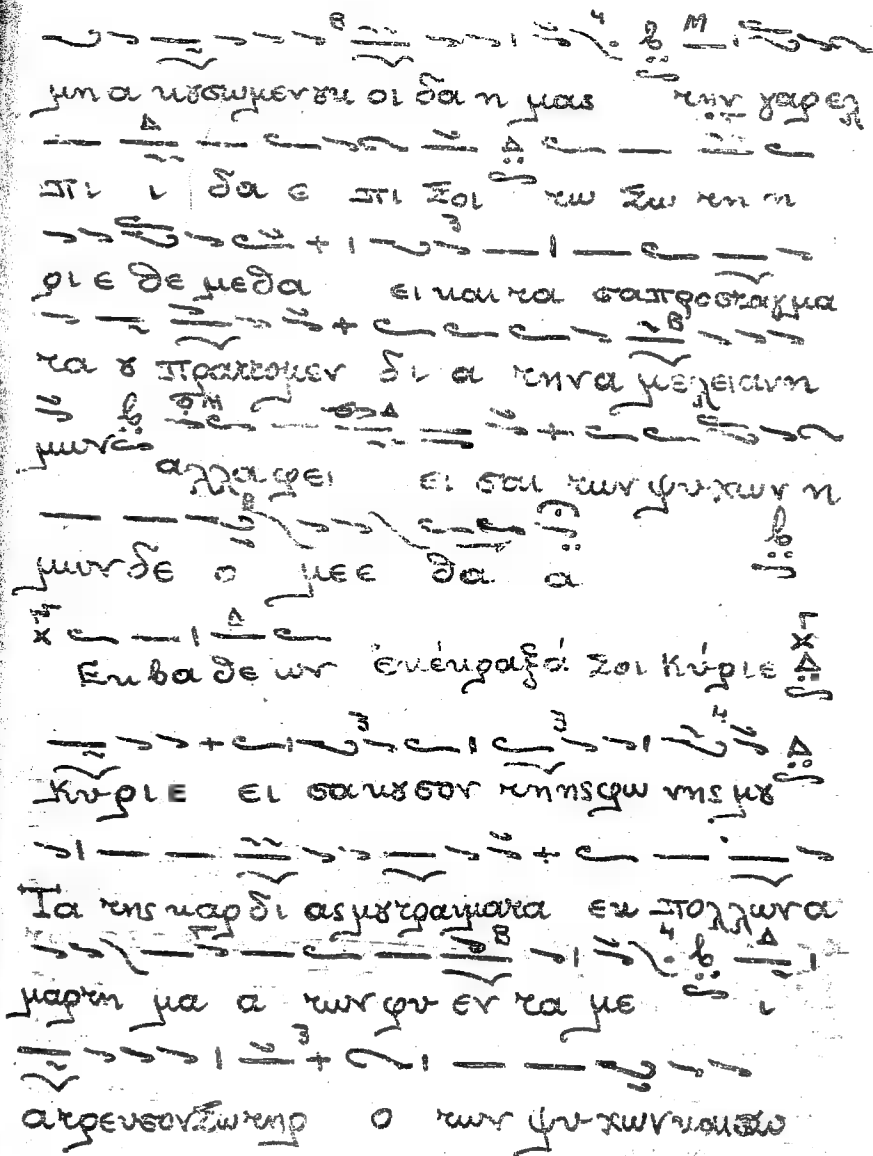 μη α κȣσωμεν ȣκ οι δα η μας την γαρ ελ
πι ι δα ε πι Σοι τω Σω τη η
ρι ε θε μεθα ει και τα σα προσταγμα
τα ȣ πραττομεν δι α την α μελειαν η
μων αλλα φει ει σαι των ψυχων η
μων δε ο με ε θα α
Εκ βα θε ων ἐκέκραξά Σοι Κύριε
Κυ ρι ε ει σακȣσον τη ης φω νης μȣ
Τα της καρ δι ας μȣ τραυματα εκ πολλων α
μαρτη μα α των φυ εν τα με ι
ατρευσον Σωτηρ ο των ψυ χων και σω